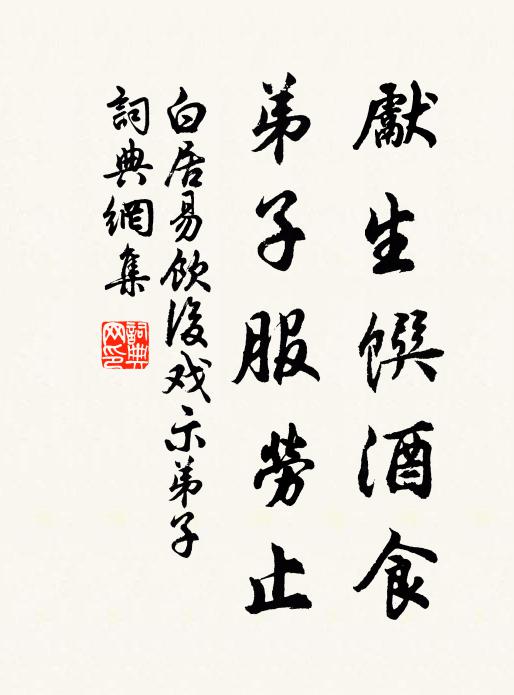 獻生饌酒食
弟子服勞止
白居易飲後戏示弟子
詞典網集
詞典网印